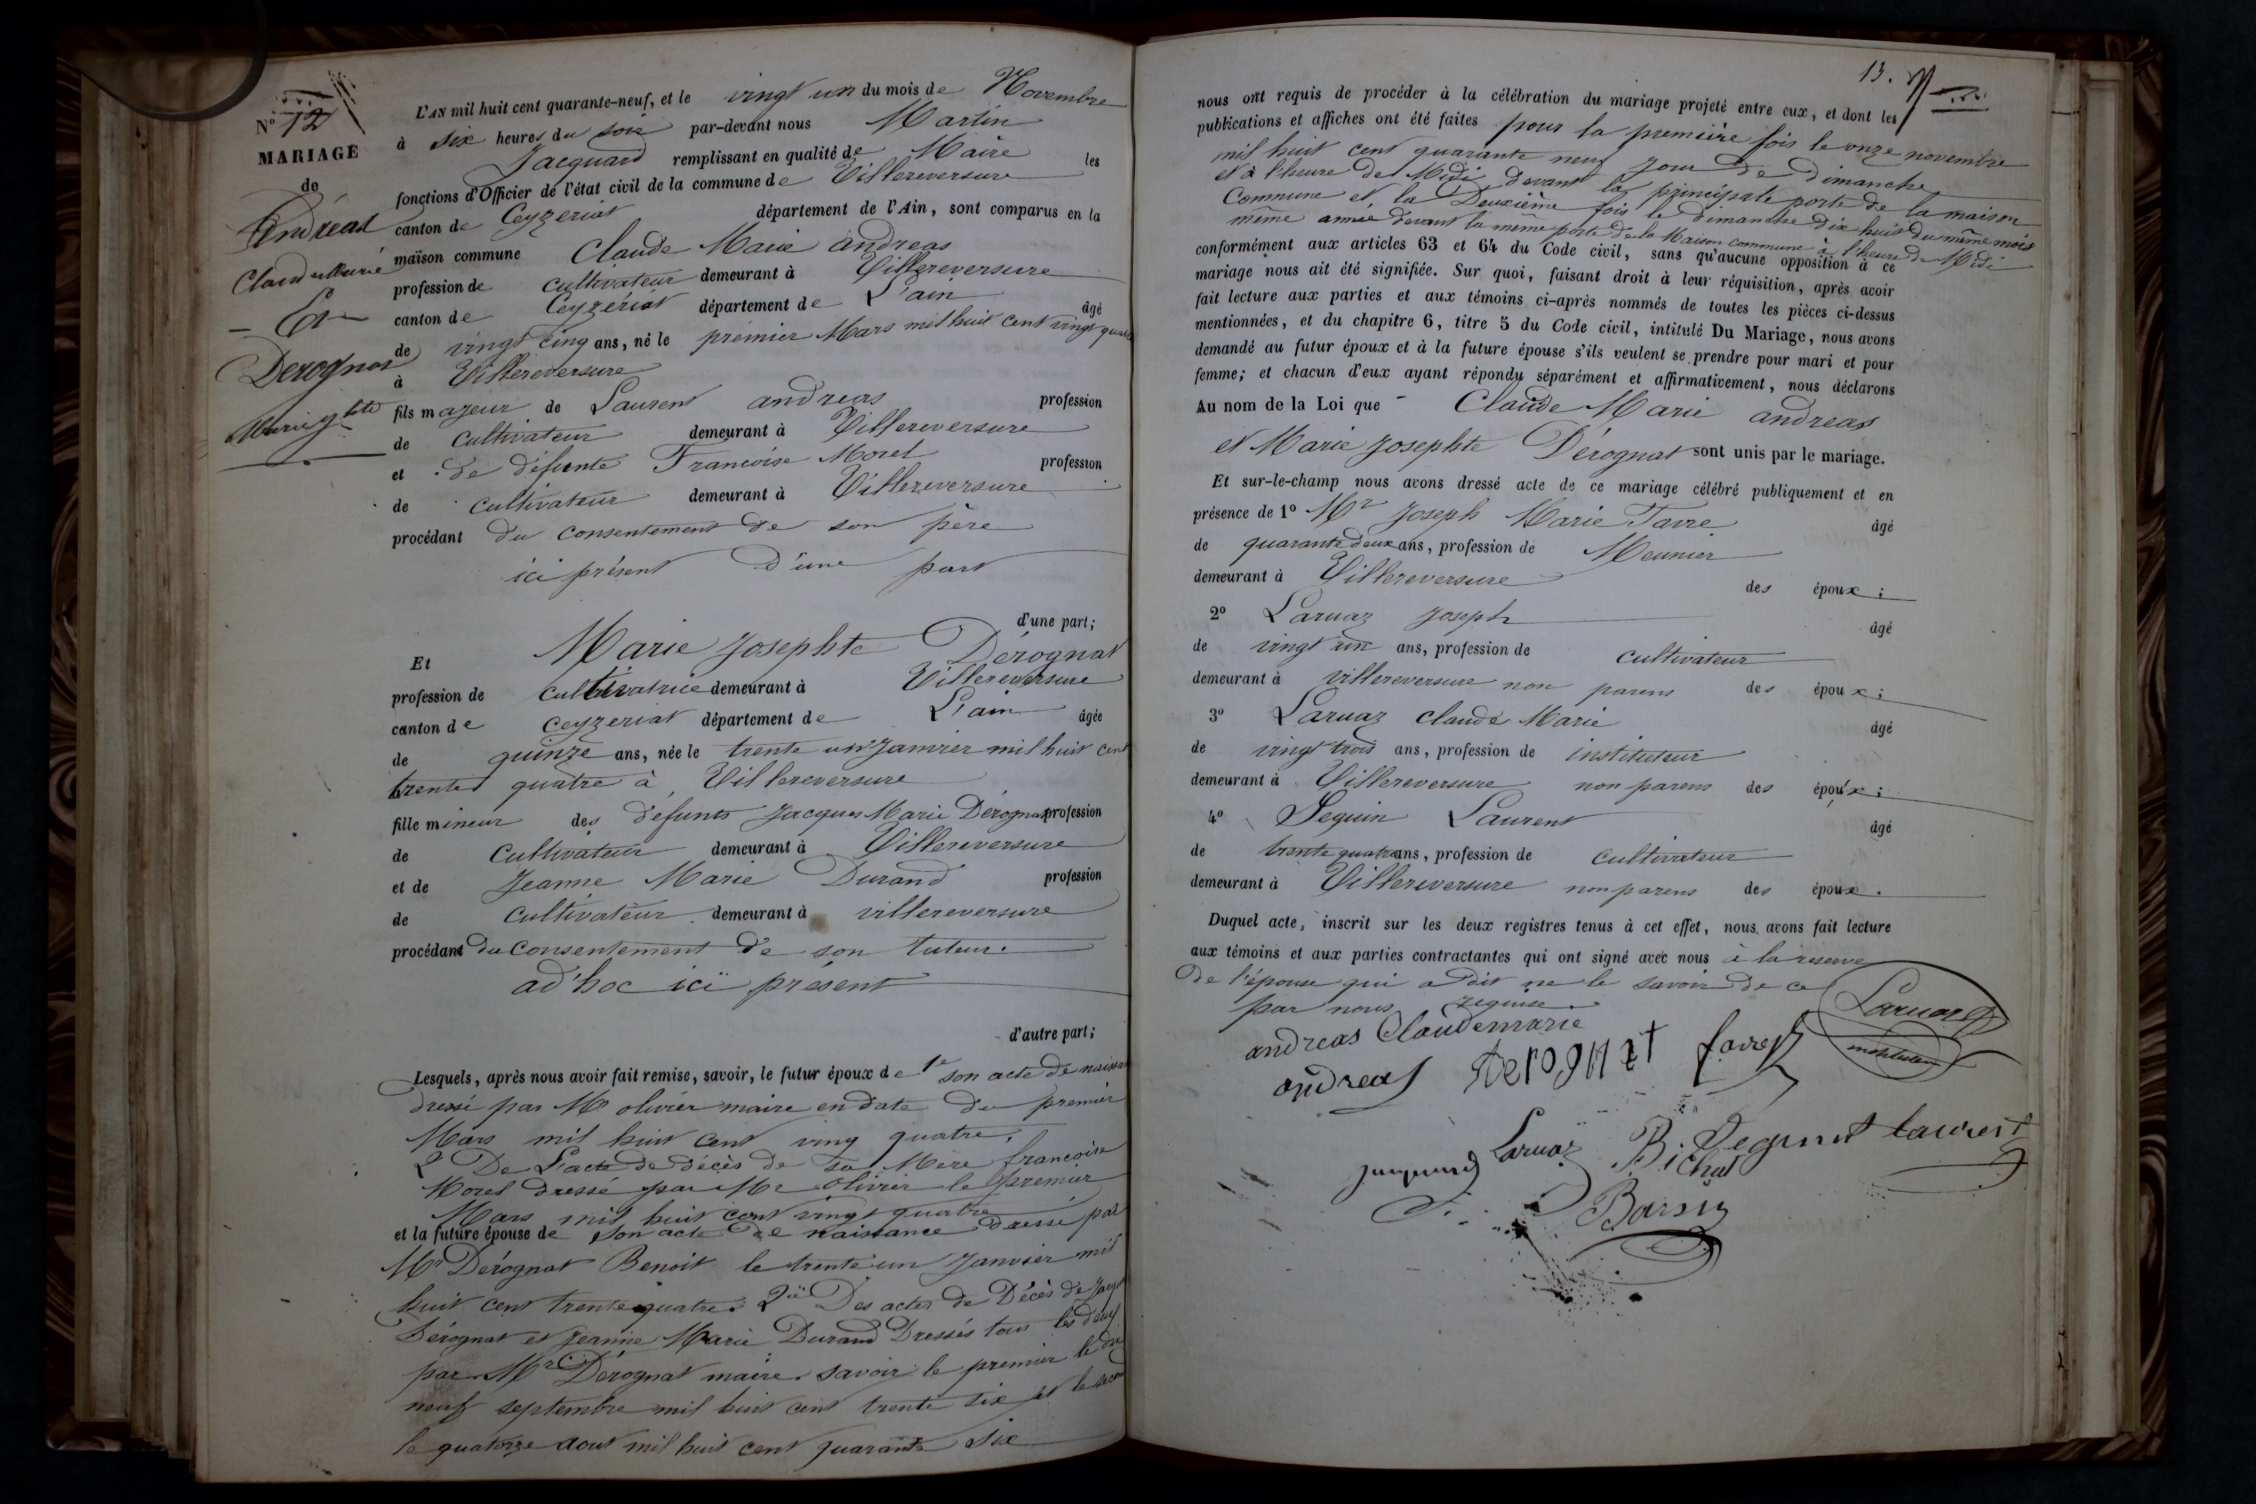 N° 12
MARIAGE
de
Andréas
Claude Marie
Et
Derognat
Marie Jhte
L'AN mil huit cent quarante-neuf, et le vingt un du mois de Novembre
à six heures du soir par-devant nous Martin
Jacquand remplissant en qualité de Maire les
fonctions d'Officier de l'état civil de la commune de Villereversure
canton de Ceyzeriat département de l'Ain, sont comparus en la
maison commune Claude Marie andreas
profession de cultivateur demeurant à Villereversure
canton de Ceyzériat département de L'ain âgé
de vingt cinq ans, né le premier Mars mil huit cent vingt quatre
à Villereversure
fils majeur de Laurent andreas profession
de cultivateur demeurant à Villereversure
et de défunte Francoise Morel profession
de cultivateur demeurant à Villereversure
procédant du consentement de son père
ici présent d'une part
d'une part;
Et Marie Josephte Dérognat
profession de cultivatrice demeurant à Villereversure
canton de ceyzeriat département de L'ain âgée
de quinze ans, née le trente un Janvier mil huit cent
trente quatre à Villereversure
fille mineur des défunts Jacques Marie Dérognat profession
de cultivateur demeurant à Villereversure
et de Jeanne Marie Durand profession
de cultivateur demeurant à villereversure
procédant du consentement de son tuteur
ad'hoc ici présent
d'autre part;
Lesquels, après nous avoir fait remise, savoir, le futur époux de 1° son acte de naissance
dressé par Mr olivier maire en date du premier
Mars mil huit cent ving quatre.
2 De L'acte de décès de sa Mère francoise
Morel dressé par Mr Olivier le premier
Mars mil huit cent vingt quatre
et la future épouse de son acte de naissance dressé par
Mr Dérognat Benoit le trente un Janvier mil
huit cent trente quatre. 2° Des actes de Décès de Jacques
Dérognat et Jeanne Marie Durand Dressés tous les deux
par Mr Dérognat maire savoir le premier le dix
neuf septembre mil huit cent trente six et le second
le quatorze aout mil huit cent quarante six
13.
nous ont requis de procéder à la célébration du mariage projeté entre eux, et dont les
publications et affiches ont été faites pour la première fois le onze novembre
mil huit cent quarante neuf jour de dimanche
et à l'heure de Midi devant la principale porte de la maison
Commune et la Deuxième fois le dimanche dix huit du même mois
même année devant la même porte de la Maison commune à l'heure de Midi
conformément aux articles 63 et 64 du Code civil, sans qu'aucune opposition à ce
mariage nous ait été signifiée. Sur quoi, faisant droit à leur réquisition, après avoir
fait lecture aux parties et aux témoins ci-après nommés de toutes les pièces ci-dessus
mentionnées, et du chapitre 6, titre 5 du Code civil, intitulé Du Mariage, nous avons
demandé au futur époux et à la future épouse s'ils veulent se prendre pour mari et pour
femme; et chacun d'eux ayant répondu séparément et affirmativement, nous déclarons
Au nom de la Loi que Claude Marie andreas
et Marie Josephte Dérognat sont unis par le mariage.
Et sur-le-champ nous avons dressé acte de ce mariage célébré publiquement et en
présence de 1° Mr Joseph Marie Favre âgé
de quarante deux ans, profession de Meunier
demeurant à Villereversure des époux;
2° Laruaz Joseph âgé
de vingt un ans, profession de cultivateur
demeurant à villereversure non parens des époux;
3° Laruaz claude Marie âgé
de vingt trois ans, profession de instituteur
demeurant à Villereversure non parens des époux;
4° Seguin Laurent âgé
de trente quatre ans, profession de cultivateur
demeurant à Villereversure non parens des époux.
Duquel acte, inscrit sur les deux registres tenus à cet effet, nous avons fait lecture
aux témoins et aux parties contractantes qui ont signé avec nous à la réserve
De l'épouse qui a dit ne le savoir de ce
par nous requise.
andreas Claudemarie
Laruaz
instituteur
andreas derognat favre
Jacquand Laruaz B. Segint laurent
Bichat